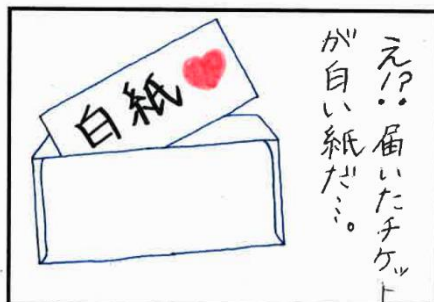 え!?届いたチケット
が白い紙だ…。
白紙